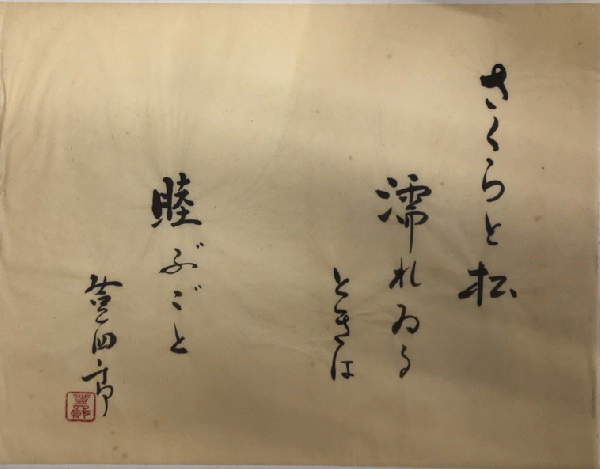 さくらと松
濡れゐる
ときは
睦ぶごと
登四郎